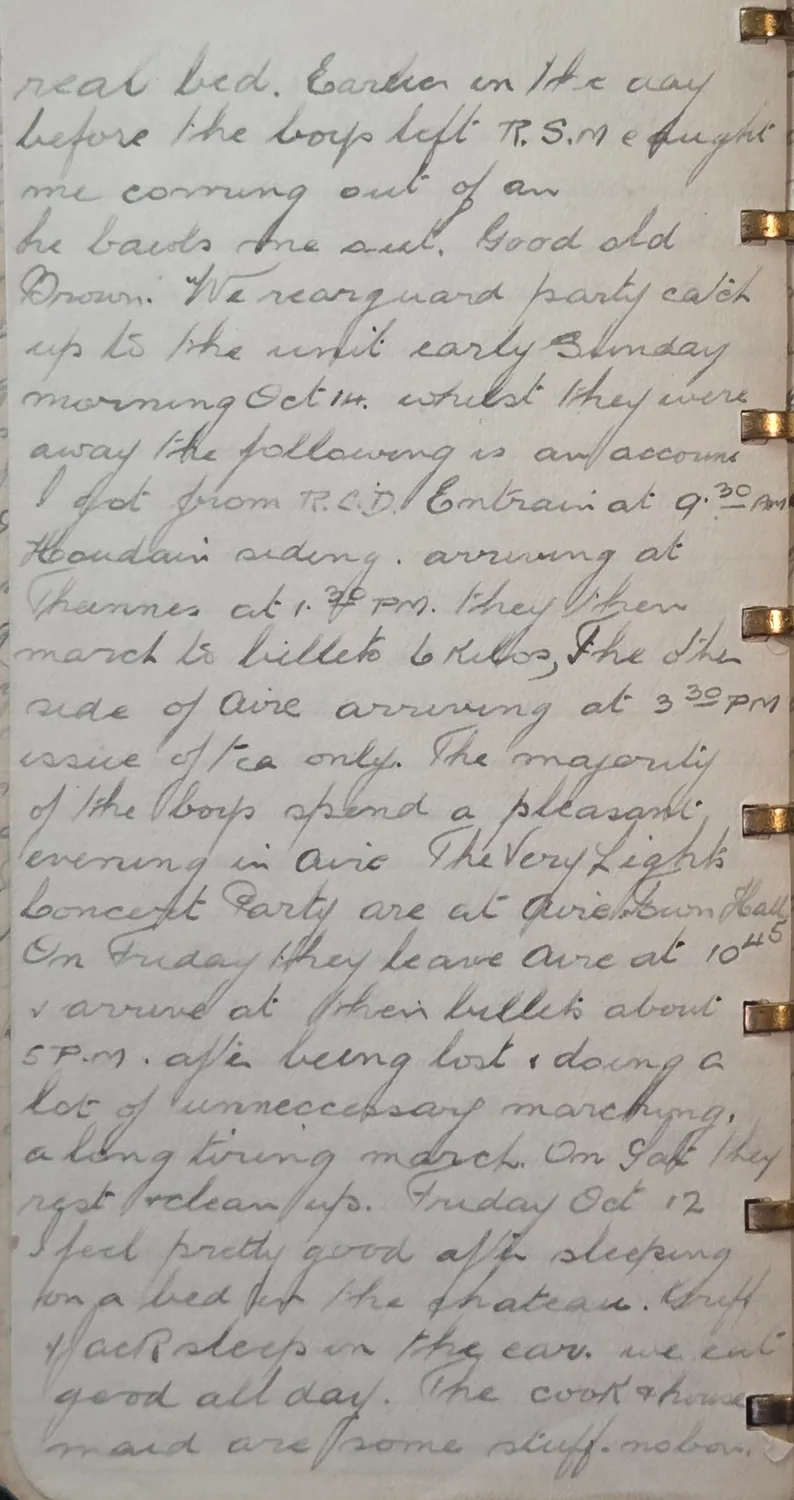 real bed. Earlier in the day
before the boys left R.S.M caught
me coming out of an
he bawls me out. Good old
Brown. We rearguard party catch
up to the unit early Sunday
morning Oct 14. whilst they were
away the following is an account
I got from R.C.D. Entrain at 9.30 AM
Houdain siding. arriving at
Thennes at 1.30 PM. they then
march to billets 6 Kilos, The other
side of Aire arriving at 3 30 PM
issue of tea only. The majority
of the boys spend a pleasant
evening in Aire The Very Lights
Concert Party are at Aire Town Hall
On Friday they leave Aire at 10 45
& arrive at their billets about
5 P.M. after being lost & doing a
lot of unneccessary marching.
a long tiring march. On Sat they
rest & clean up. Friday Oct 12
I feel pretty good after sleeping
on a bed in the chateau. Griff
& Jack sleep in the car. we eat
good all day. The cook & house
maid are some stuff. nobon.